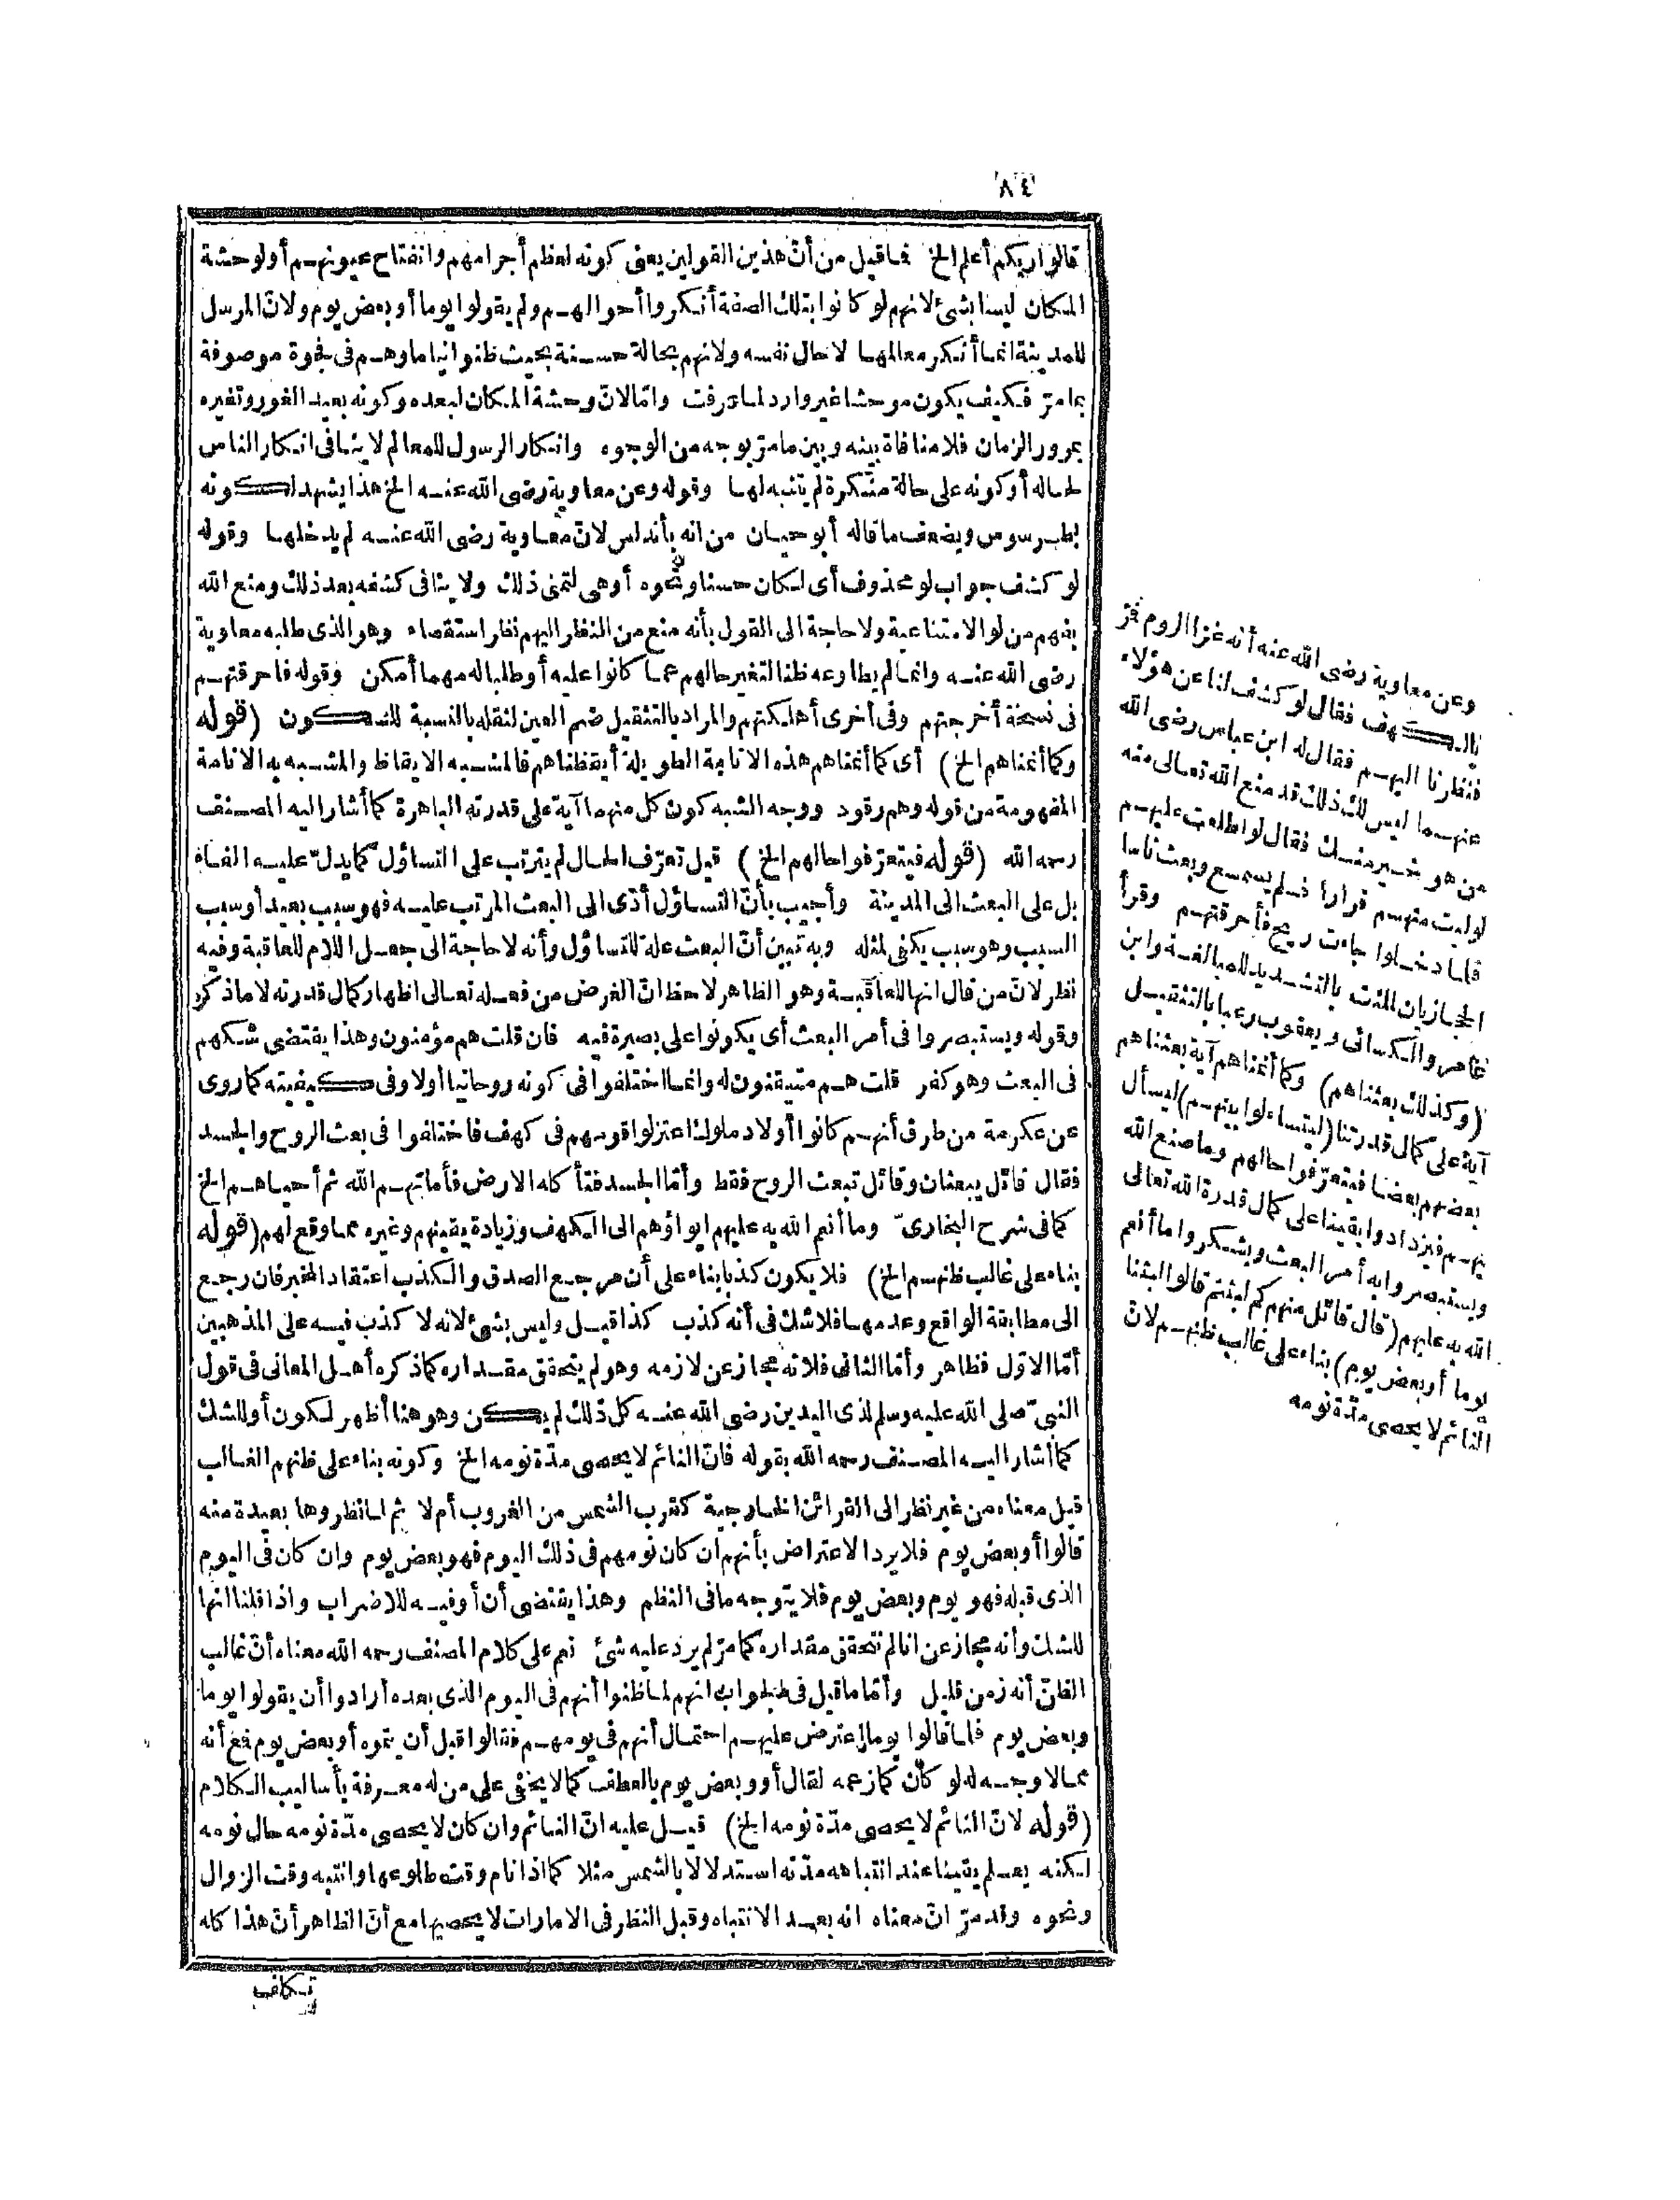 ٨٤
قالوا ربكم أعلم الخ فما قيل من أنّ هذين القولين يعنى كونه لعظم أجرامهم وانفتاح عيونهم أولوحشة
المكان ليسا بشئ لانهم لو كانوا بتلك الصفة أنكروا أحوالهم ولم يقولوا يوما أو بعض يوم ولانّ المرسل
للمدينة انما أنكر معالمها لا حال نفسه ولانهم بحالة حسنة بحيث ظنوا نياما وهم فى فجوة موصوفة
بما مرّ فكيف يكون موحشا غير وارد لما عرفت وامّا لانّ وحشة المكان لبعده وكونه بعيد الغور وتغيره
بمرور الزمان فلا منافاة بينه وبين ما مرّ بوجه من الوجوه وانكار الرسول للمعالم لا ينافى انكار الناس
لحاله أو كونه على حالة منكرة لم يتنبه لها وقوله وعن معاوية رضى الله عنه الخ هذا يشهد لكونه
بطرسوس ويضعف ما قاله أبو حيان من انه بأندلس لانّ معاوية رضى الله عنه لم يدخلها وقوله
لو كشف جواب لو محذوف أى لكان حسنا ونحوه أوهى لتمنى ذلك ولا ينافى كشفه بعد ذلك ومنع الله
يفهم من لو الامتناعية ولا حاجة الى القول بأنه منع من النظر اليهم نظر استقصاء وهو الذى طلبه معاوية
رضى الله عنه وانما لم يطاوعه ظنا لتغير حالهم عما كانوا عليه أو طلبا له مهما أمكن وقوله فاحرقتهم
فى نسخة أخرجتهم وفى أخرى أهلكتهم والمراد بالتثقيل ضم العين لثقله بالنسبة للسكون (قوله
وكما أنمناهم الخ) أى كما أنمناهم هذه الانامة الطويلة أيقظناهم فالمشبه الايقاظ والمشبه به الانامة
المفهومة من قوله وهم رقود ووجه الشبه كون كل منهما آية على قدرته الباهرة كما أشار اليه المصنف
رحمه الله (قوله فيتعرّفوا حالهم الخ) قيل تعرّف الحال لم يترتب على التساؤل كما يدلّ عليه الفاء
بل على البعث الى المدينة وأجيب بأنّ التساؤل أدّى الى البعث المرتب عليه فهو سبب بعيد أو سبب
السبب وهو سبب يكفى لمثله وبه تبين أنّ البعث علة للتساؤل وأنه لا حاجة الى جعل اللام للعاقبة وفيه
نظر لانّ من قال انها للعاقبة وهو الظاهر لاحظ انّ الغرض من فعله تعالى اظهار كمال قدرته لا ما ذكر
وقوله ويستبصروا فى أمر البعث أى يكونوا على بصيرة فيه فان قلت هم مؤمنون وهذا يقتضى شكهم
فى البعث وهو كفر قلت هم متيقنون له وانما اختلفوا فى كونه روحانيا أولا وفى كيفيته كما روى
عن عكرمة من طرق أنهم كانوا أولاد ملوك اعتزلوا قومهم فى كهف فاختلفوا فى بعث الروح والجسد
فقال قائل يبعثان وقائل تبعث الروح فقط وأمّا الجسد فتأكله الارض فأماتهم الله ثم أحياهم الخ
كما فى شرح البخارىّ وما أنعم الله به عليهم ايواؤهم الى الكهف وزيادة يقينهم وغيره مما وقع لهم (قوله
بناء على غالب ظنهم الخ) فلا يكون كذبا بناء على أن مرجع الصدق والكذب اعتقاد المخبر فان رجع
الى مطابقة الواقع وعدمها فلا شك فى أنه كذب كذا قيل وليس بشئ لانه لا كذب فيه على المذهبين
أمّا الاوّل فظاهر وأمّا الثانى فلانه مجاز عن لازمه وهو لم يتحقق مقداره كما ذكره أهل المعانى فى قول
النبىّ صلى الله عليه وسلم لذى اليدين رضى الله عنه كل ذلك لم يكن وهو هنا أظهر لكون أو للشك
كما أشار اليه المصنف رحمه الله بقوله فانّ النائم لا يحصى مدّة نومه الخ وكونه بناء على ظنهم الغالب
قيل معناه من غير نظر الى القرائن الخارجية كقرب الشمس من الغروب أم لا ثم لما نظروها بعيدة منه
قالوا أو بعض يوم فلا يرد الاعتراض بأنهم ان كان نومهم فى ذلك اليوم فهو بعض يوم وان كان فى اليوم
الذى قبله فهو يوم وبعض يوم فلا يتوجه ما فى النظم وهذا يقتضى أن أو فيه للاضراب واذا قلنا انها
للشك وأنه مجاز عن انا لم نتحقق مقداره كما مرّ لم يرد عليه شئ نعم على كلام المصنف رحمه الله معناه أنّ غالب
الظنّ أنه زمن قليل وأمّا ما قيل فى الجواب انهم لما ظنوا أنهم فى اليوم الذى بعده أرادوا أن يقولوا يوما
وبعض يوم فلما قالوا يوما اعترض عليهم احتمال أنهم فى يومهم فقالوا قبل أن يتموه أو بعض يوم فمع أنه
مما لا وجه له لو كان كما زعمه لقال أو وبعض يوم بالعطف كما لا يخفى على من له معرفة بأساليب الكلام
(قوله لانّ النائم لا يحصى مدّة نومه الخ) قيل عليه انّ النائم وان كان لا يحصى مدّة نومه حال نومه
لكنه يعلم يقينا عند انتباهه مدّته استدلالا بالشمس مثلا كما اذا نام وقت طلوعها وانتبه وقت الزوال
ونحوه وقد مرّ انّ معناه انه بعد الانتباه وقبل النظر فى الامارات لا يحصيها مع أنّ الظاهر أنّ هذا كله
تكلف
وعن معاوية رضى الله عنه أنه غزا الروم فمرّ
بالكهف فقال لو كشف لنا عن هؤلاء
فنظرنا اليهم فقال له ابن عباس رضى الله
عنهما ليس لك ذلك قد منع الله تعالى منه
من هو خير منك فقال لو اطلعت عليهم
لوليت منهم فرارا فلم يسمع وبعث ناسا
فلما دخلوا جاءت ريح فأحرقتهم وقرأ
الحجازيان لملئت بالتشديد للمبالغة وابن
عامر والكسائى ويعقوب رعبا بالتثقيل
(وكذلك بعثناهم) وكما أنمناهم آية بعثناهم
آية على كمال قدرتنا (ليتساءلوا بينهم) ليسأل
بعضهم بعضا فيتعرّفوا حالهم وما صنع الله
بهم فيزدادوا يقينا على كمال قدرة الله تعالى
ويستبصروا به أمر البعث ويشكروا ما أنعم
الله به عليهم (قال قائل منهم كم لبثتم قالوا لبثنا
يوما أو بعض يوم) بناء على غالب ظنهم لانّ
النائم لا يحصى مدّة نومه